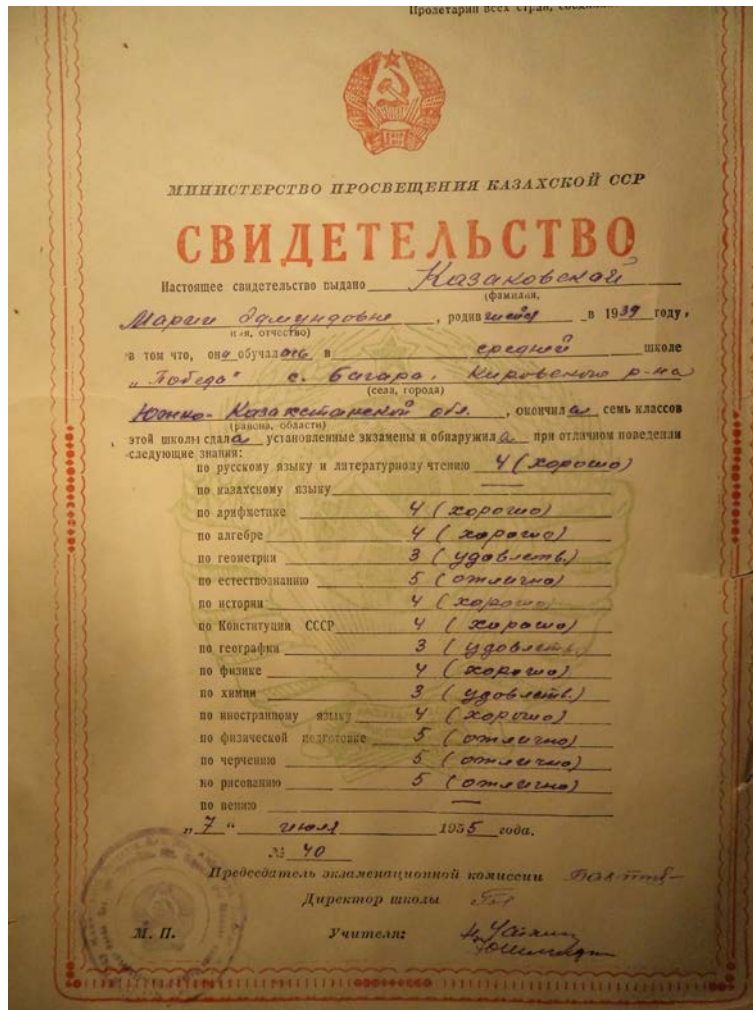 Пролетарии всех стран, соединяй
МИНИСТЕРСТВО ПРОСВЕЩЕНИЯ КАЗАХСКОЙ ССР
СВИДЕТЕЛЬСТВО
Настоящее свидетельство выдано Казаковской
(фамилия,
Марии Эдмундовне, родившейся в 1939 году,
имя, отчество)
в том что, она обучалась в средней школе
„Победа" с. Багара, Кировского р-на
(села, города)
Южно-Казахстанской обл., окончила семь классов
(района, области)
этой школы сдала установленные экзамены и обнаружила при отличном поведении
следующие знания:
по русскому языку и литературному чтению 4 (хорошо)
по казахскому языку —
по арифметике 4 (хорошо)
по алгебре 4 (хорошо)
по геометрии 3 (удовлетв.)
по естествознанию 5 (отлично)
по истории 4 (хорошо)
по Конституции СССР 4 (хорошо)
по географии 3 (удовлетв.)
по физике 4 (хорошо)
по химии 3 (удовлетв.)
по иностранному языку 4 (хорошо)
по физической подготовке 5 (отлично)
по черчению 5 (отлично)
по рисованию 5 (отлично)
по пению —
„7" июля 1955 года.
№ 40
Председатель экзаменационной комиссии
Директор школы
М. П. Учителя: